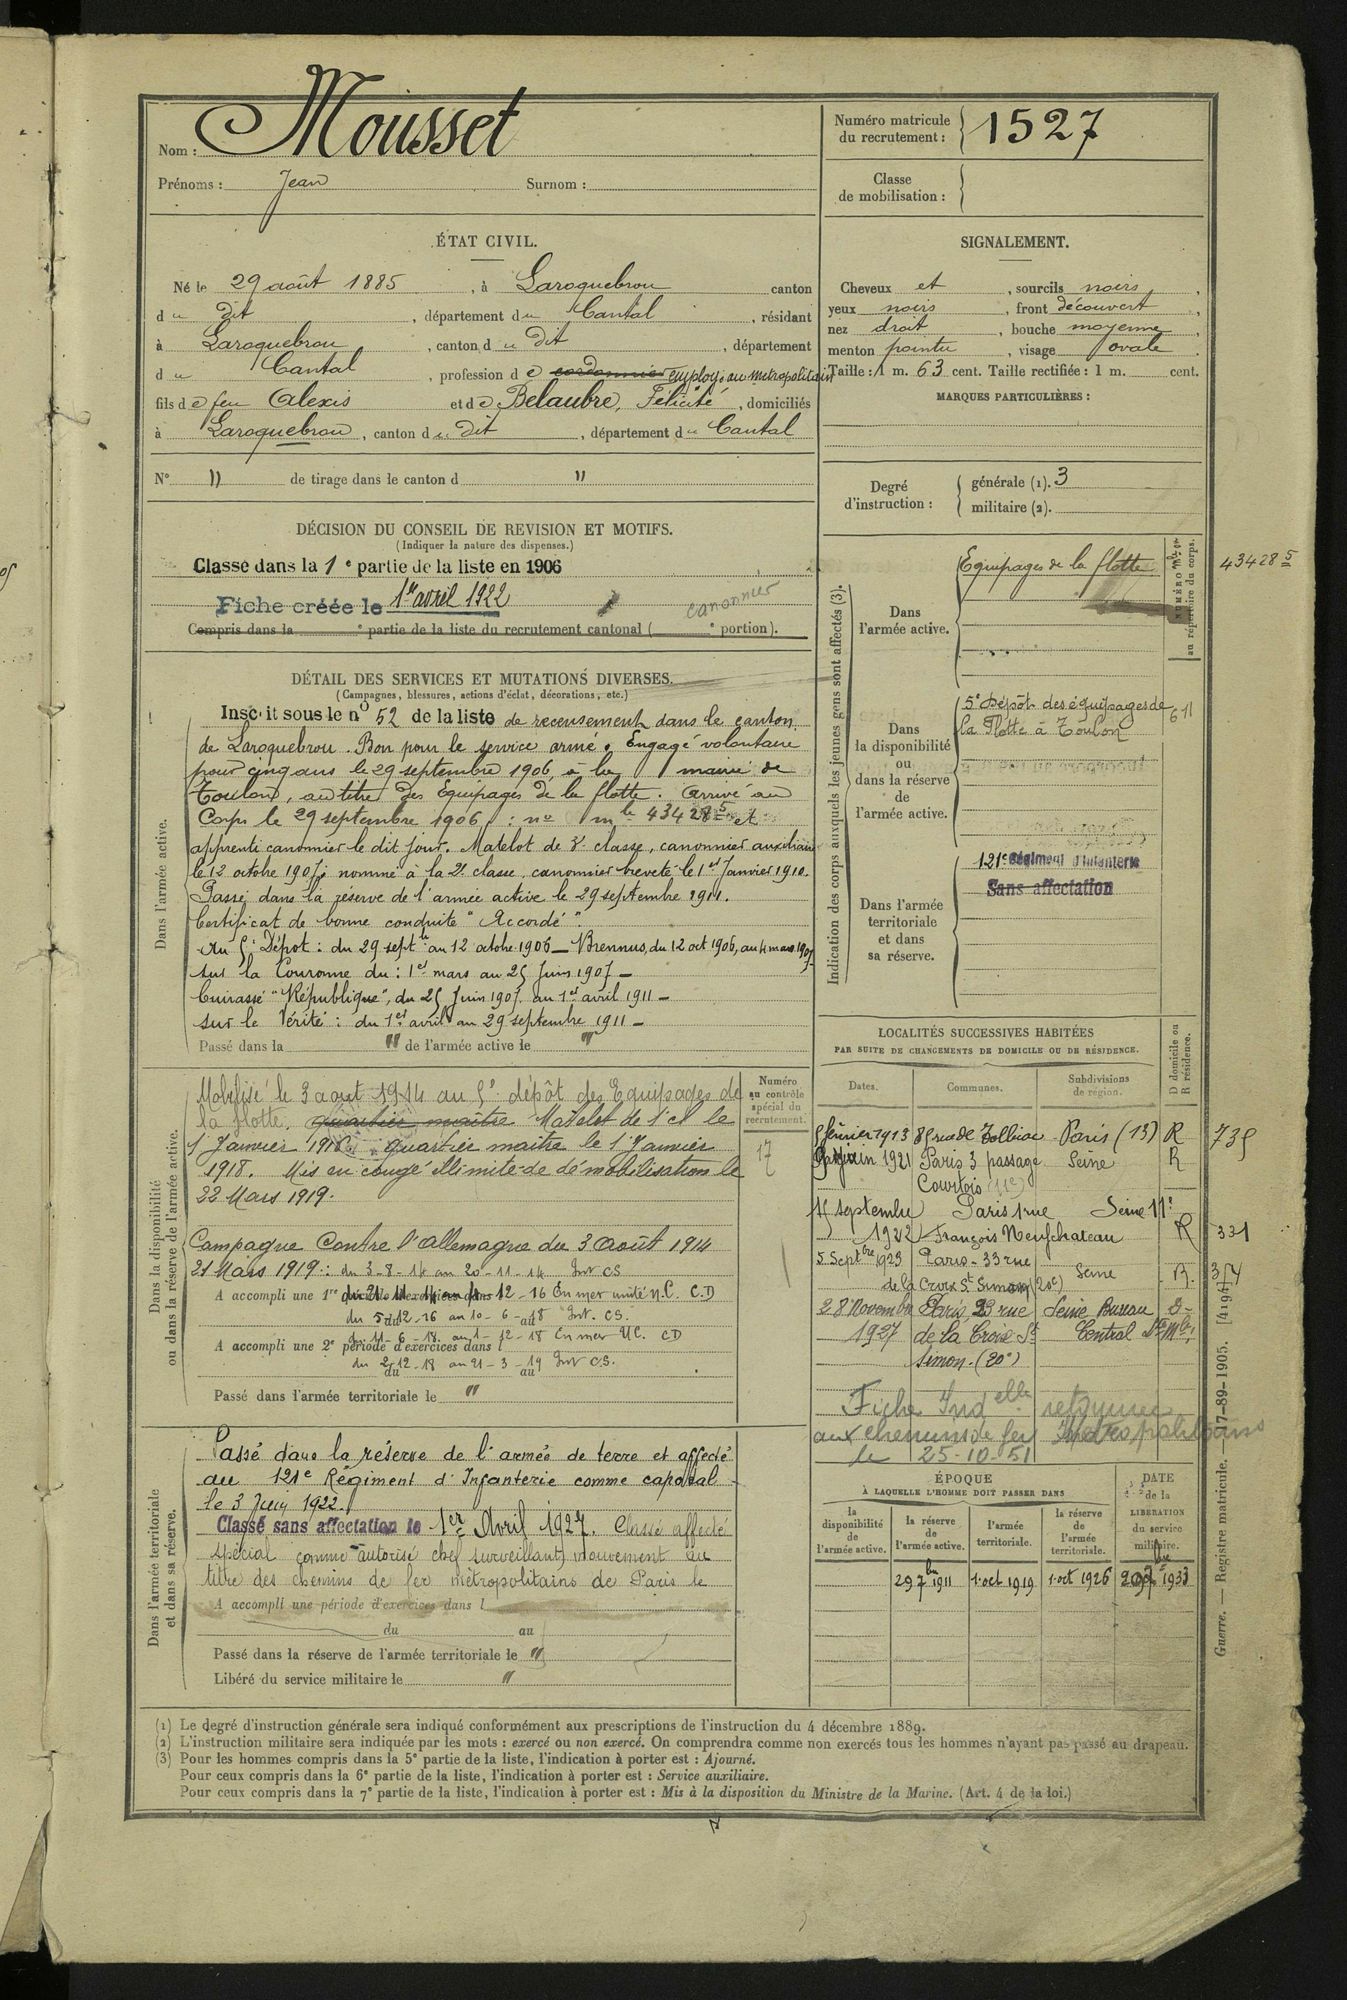 Nom : Mousset
Prénoms : Jean Surnom :
Numéro matricule du recrutement : 1527
Classe de mobilisation :
ÉTAT CIVIL.
Né le 29 août 1885, à Laroquebrou canton
du dit, département du Cantal, résidant
à Laroquebrou, canton du dit, département
du Cantal, profession de cordonnier employé au métropolitain
fils de feu Alexis et de Belaubre, Félicité, domiciliés
à Laroquebrou, canton du dit, département du Cantal
N° " de tirage dans le canton d "
SIGNALEMENT.
Cheveux et, sourcils noirs,
yeux noirs, front découvert,
nez droit, bouche moyenne,
menton pointu, visage ovale.
Taille : 1 m. 63 cent. Taille rectifiée : 1 m. cent.
MARQUES PARTICULIÈRES :
Degré d'instruction :
générale (1). 3
militaire (2).
DÉCISION DU CONSEIL DE REVISION ET MOTIFS.
(Indiquer la nature des dispenses.)
Classé dans la 1e partie de la liste en 1906
Fiche créée le 1er avril 1922
canonnier
Compris dans la e partie de la liste du recrutement cantonal ( e portion).
DÉTAIL DES SERVICES ET MUTATIONS DIVERSES.
(Campagnes, blessures, actions d'éclat, décorations, etc.)
Dans l'armée active.
Inscrit sous le no 52 de la liste de recensement dans le canton
de Laroquebrou. Bon pour le service armé. Engagé volontaire
pour cinq ans le 29 septembre 1906, à la mairie de
Toulon, au titre des Equipages de la flotte. Arrivé au
Corps le 29 septembre 1906, : no mle 43428-5 et
apprenti canonnier le dit jour. Matelot de 3e classe, canonnier auxiliaire
le 12 octobre 1907; nommé à la 2e classe, canonnier breveté le 1er Janvier 1910.
Passé dans la réserve de l'armée active le 29 septembre 1911.
Certificat de bonne conduite "Accordé".
Au 5e Dépot : du 29 septbre au 12 octobre 1906 - Brennus, du 12 oct 1906, au 4 mars 1907
sur la Couronne du : 1er mars au 25 Juin 1907 -
Cuirassé "République", du 25 Juin 1907 au 1er avril 1911 -
sur le Vérité : du 1er avril au 29 septembre 1911 -
Passé dans la " de l'armée active le "
Indication des corps auxquels les jeunes gens sont affectés (3).
Dans l'armée active.
Equipages de la flotte
NUMÉRO
au répertoire du corps.
43428 5
Dans la disponibilité ou dans la réserve de l'armée active.
5e Dépôt des équipages de
la Flotte à Toulon
611
Dans l'armée territoriale et dans sa réserve.
121e Régiment d'Infanterie
Sans affectation
Dans la disponibilité
ou dans la réserve de l'armée active.
Numéro au contrôle spécial du recrutement.
17
Mobilisé le 3 aout 1914 au 5e dépôt des Equipages de
la flotte. quartier maître Matelot de 1e cl le
1 Janvier 1916. quartier maitre le 1 Janvier
1918. Mis en congé illimité de démobilisation le
22 Mars 1919.
Campagne Contre l'Allemagne du 3 Août 1914
21 Mars 1919 : du 3-8-14 au 20-11-14 Int CS
A accompli une 1re période d'exercices dans
du 21-11-14 au 4-12-16 En mer unité N.C. C.D
du 5-12-16 au 10-6-18 Int. CS.
du 11-6-18 au 1-12-18 En mer UC. CD
A accompli une 2e période d'exercices dans l
du 2-12-18 au 21-3-19 Int CS.
du au
Passé dans l'armée territoriale le "
LOCALITÉS SUCCESSIVES HABITÉES
PAR SUITE DE CHANGEMENTS DE DOMICILE OU DE RÉSIDENCE.
Dates. Communes. Subdivisions de région. D domicile ou R résidence.
5 février 1913 85 rue de Tolbiac Paris (13) R 735
juin 1921 Paris 3 passage Courtois (11e) Seine R
15 septembre 1922 Paris 1 rue François Neufchateau Seine 11e R 331
5 Septbre 1923 Paris - 33 rue de la Croix St Simon (20e) Seine R. 374
28 Novembre 1927 Paris, 23 rue de la Croix St Simon. (20e) Seine Bureau Central D-
Fiche Indelle retournée
aux chemins de fer Métropolitains
le 25-10-51
Dans l'armée territoriale
et dans sa réserve.
Passé dans la réserve de l'armée de terre et affecté
au 121e Régiment d'Infanterie comme caporal
le 3 Juin 1922.
Classé sans affectation le 1er Avril 1927. Classé affecté
spécial comme autorisé chef surveillant, mouvement au
titre des chemins de fer métropolitains de Paris le
A accompli une période d'exercices dans l
du au
Passé dans la réserve de l'armée territoriale le "
Libéré du service militaire le "
ÉPOQUE
À LAQUELLE L'HOMME DOIT PASSER DANS
la disponibilité de l'armée active.
la réserve de l'armée active.
l'armée territoriale.
la réserve de l'armée territoriale.
DATE de la LIBÉRATION du service militaire.
29 7bre 1911 1 oct 1919 1 oct 1926 29 7bre 1933
Guerre. — Registre matricule. — 17-89-1905. [41947]
(1) Le degré d'instruction générale sera indiqué conformément aux prescriptions de l'instruction du 4 décembre 1889.
(2) L'instruction militaire sera indiquée par les mots : exercé ou non exercé. On comprendra comme non exercés tous les hommes n'ayant pas passé au drapeau.
(3) Pour les hommes compris dans la 5e partie de la liste, l'indication à porter est : Ajourné.
Pour ceux compris dans la 6e partie de la liste, l'indication à porter est : Service auxiliaire.
Pour ceux compris dans la 7e partie de la liste, l'indication à porter est : Mis à la disposition du Ministre de la Marine. (Art. 4 de la loi.)